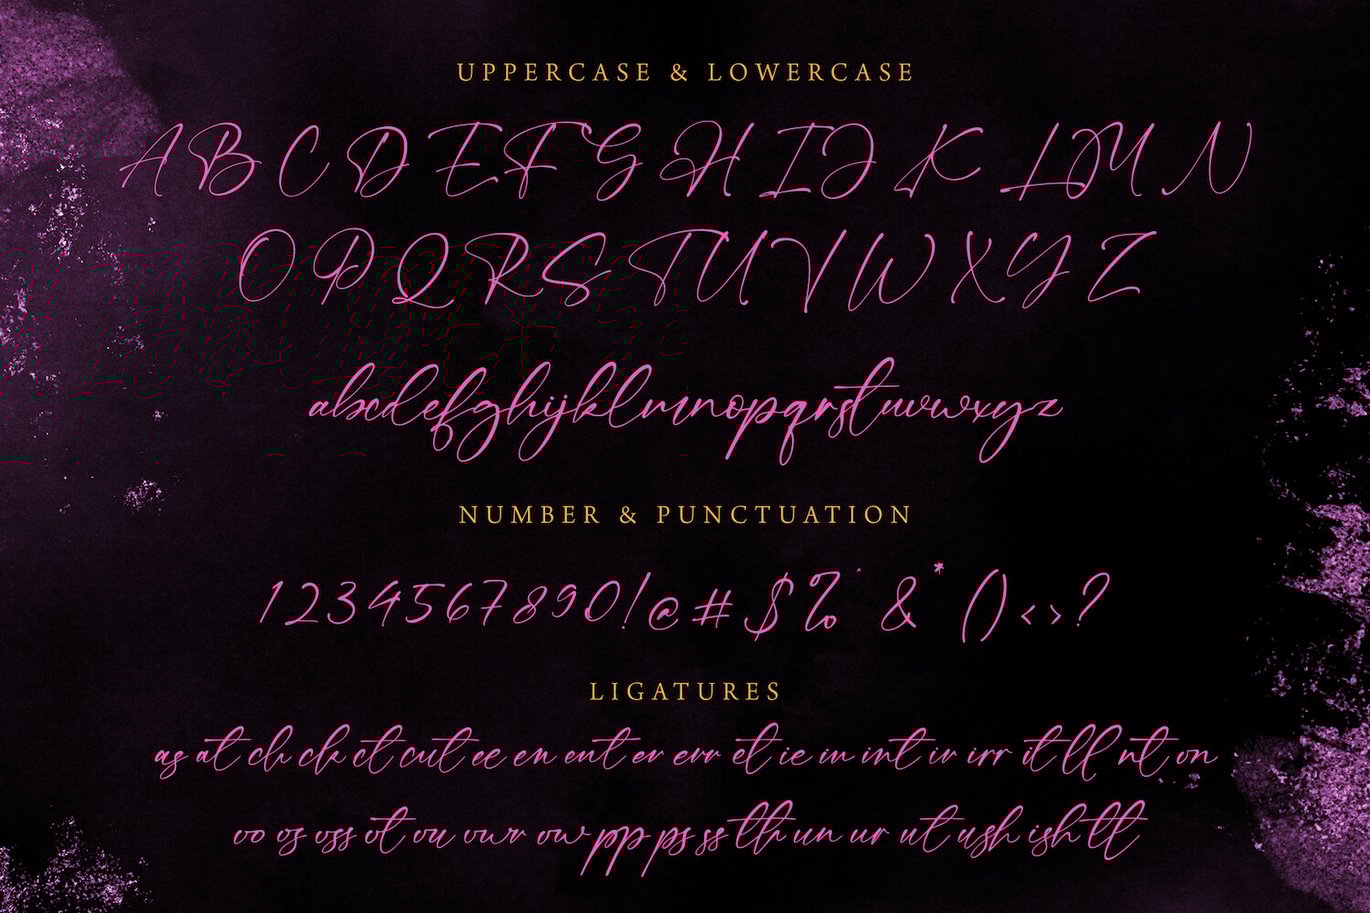 UPPERCASE & LOWERCASE
A B C D E F G H I J K L M N
O P Q R S T U V W X Y Z
abcdefghijklmnopqrstuvwxyz
NUMBER & PUNCTUATION
1234567890!@#$%'&*()<>?
LIGATURES
as at ch ck ct cut ee en ent er err et ie in int ir irr it ll nt on
oo os oss ot ou our ow pp ps ss th un ur ut ush ish tt